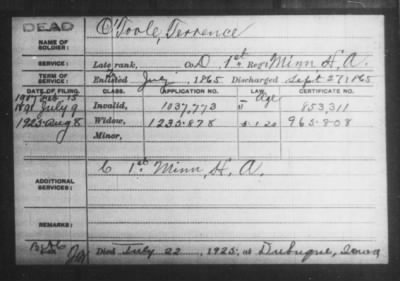 DEAD
NAME OF SOLDIER: O'Toole, Terrence
SERVICE: Late rank, Co. D. 1st Reg't Minn H. A.
TERM OF SERVICE: Enlisted July, 1865 Discharged Sept 27, 1865
DATE OF FILING. CLASS. APPLICATION NO. LAW. CERTIFICATE NO.
1907 Feb. 15 Age
1891 July 9 Invalid, 1037,773 " 853,311
1925 Aug 8 Widow, 1235.878 5-1.20 965.808
Minor,
ADDITIONAL SERVICES: C 1st Minn, H. A.
REMARKS:
Died July 22, 1925, at Dubuque, Iowa